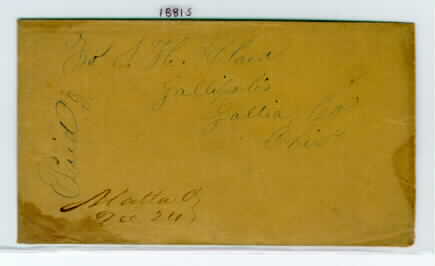 1881S
Gallipolis
Gallia Co
Ohio
Paid 3
Malta O
Dec 24